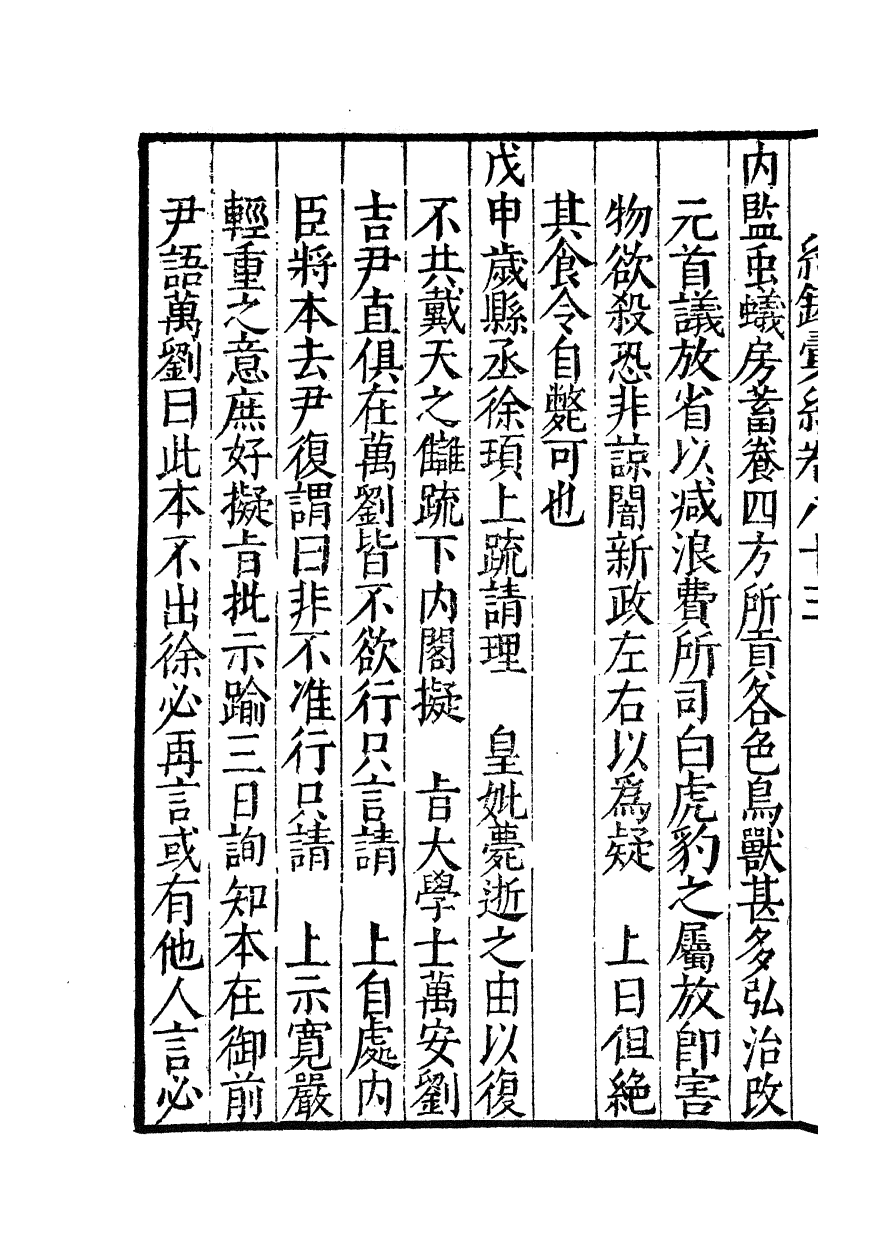 紀錄彙編卷八十三
内監䖝蟻房蓄養四方所貢各色鳥獸甚多弘治改
元首議放省以减浪費所司白虎豹之屬放卽害
物欲殺恐非諒闇新政左右以爲疑　上曰但絶
其食令自斃可也
戊申歲縣丞徐頊上䟽請理　皇妣薨逝之由以復
不共戴天之讎䟽下内閣擬　㫖大學士萬安劉
吉尹直俱在萬劉皆不欲行只言請　上自處内
臣將本去尹復謂曰非不准行只請　上示寛嚴
輕重之意庶好擬㫖批示踰三日詢知本在御前
尹語萬劉曰此本不出徐必再言或有他人言必